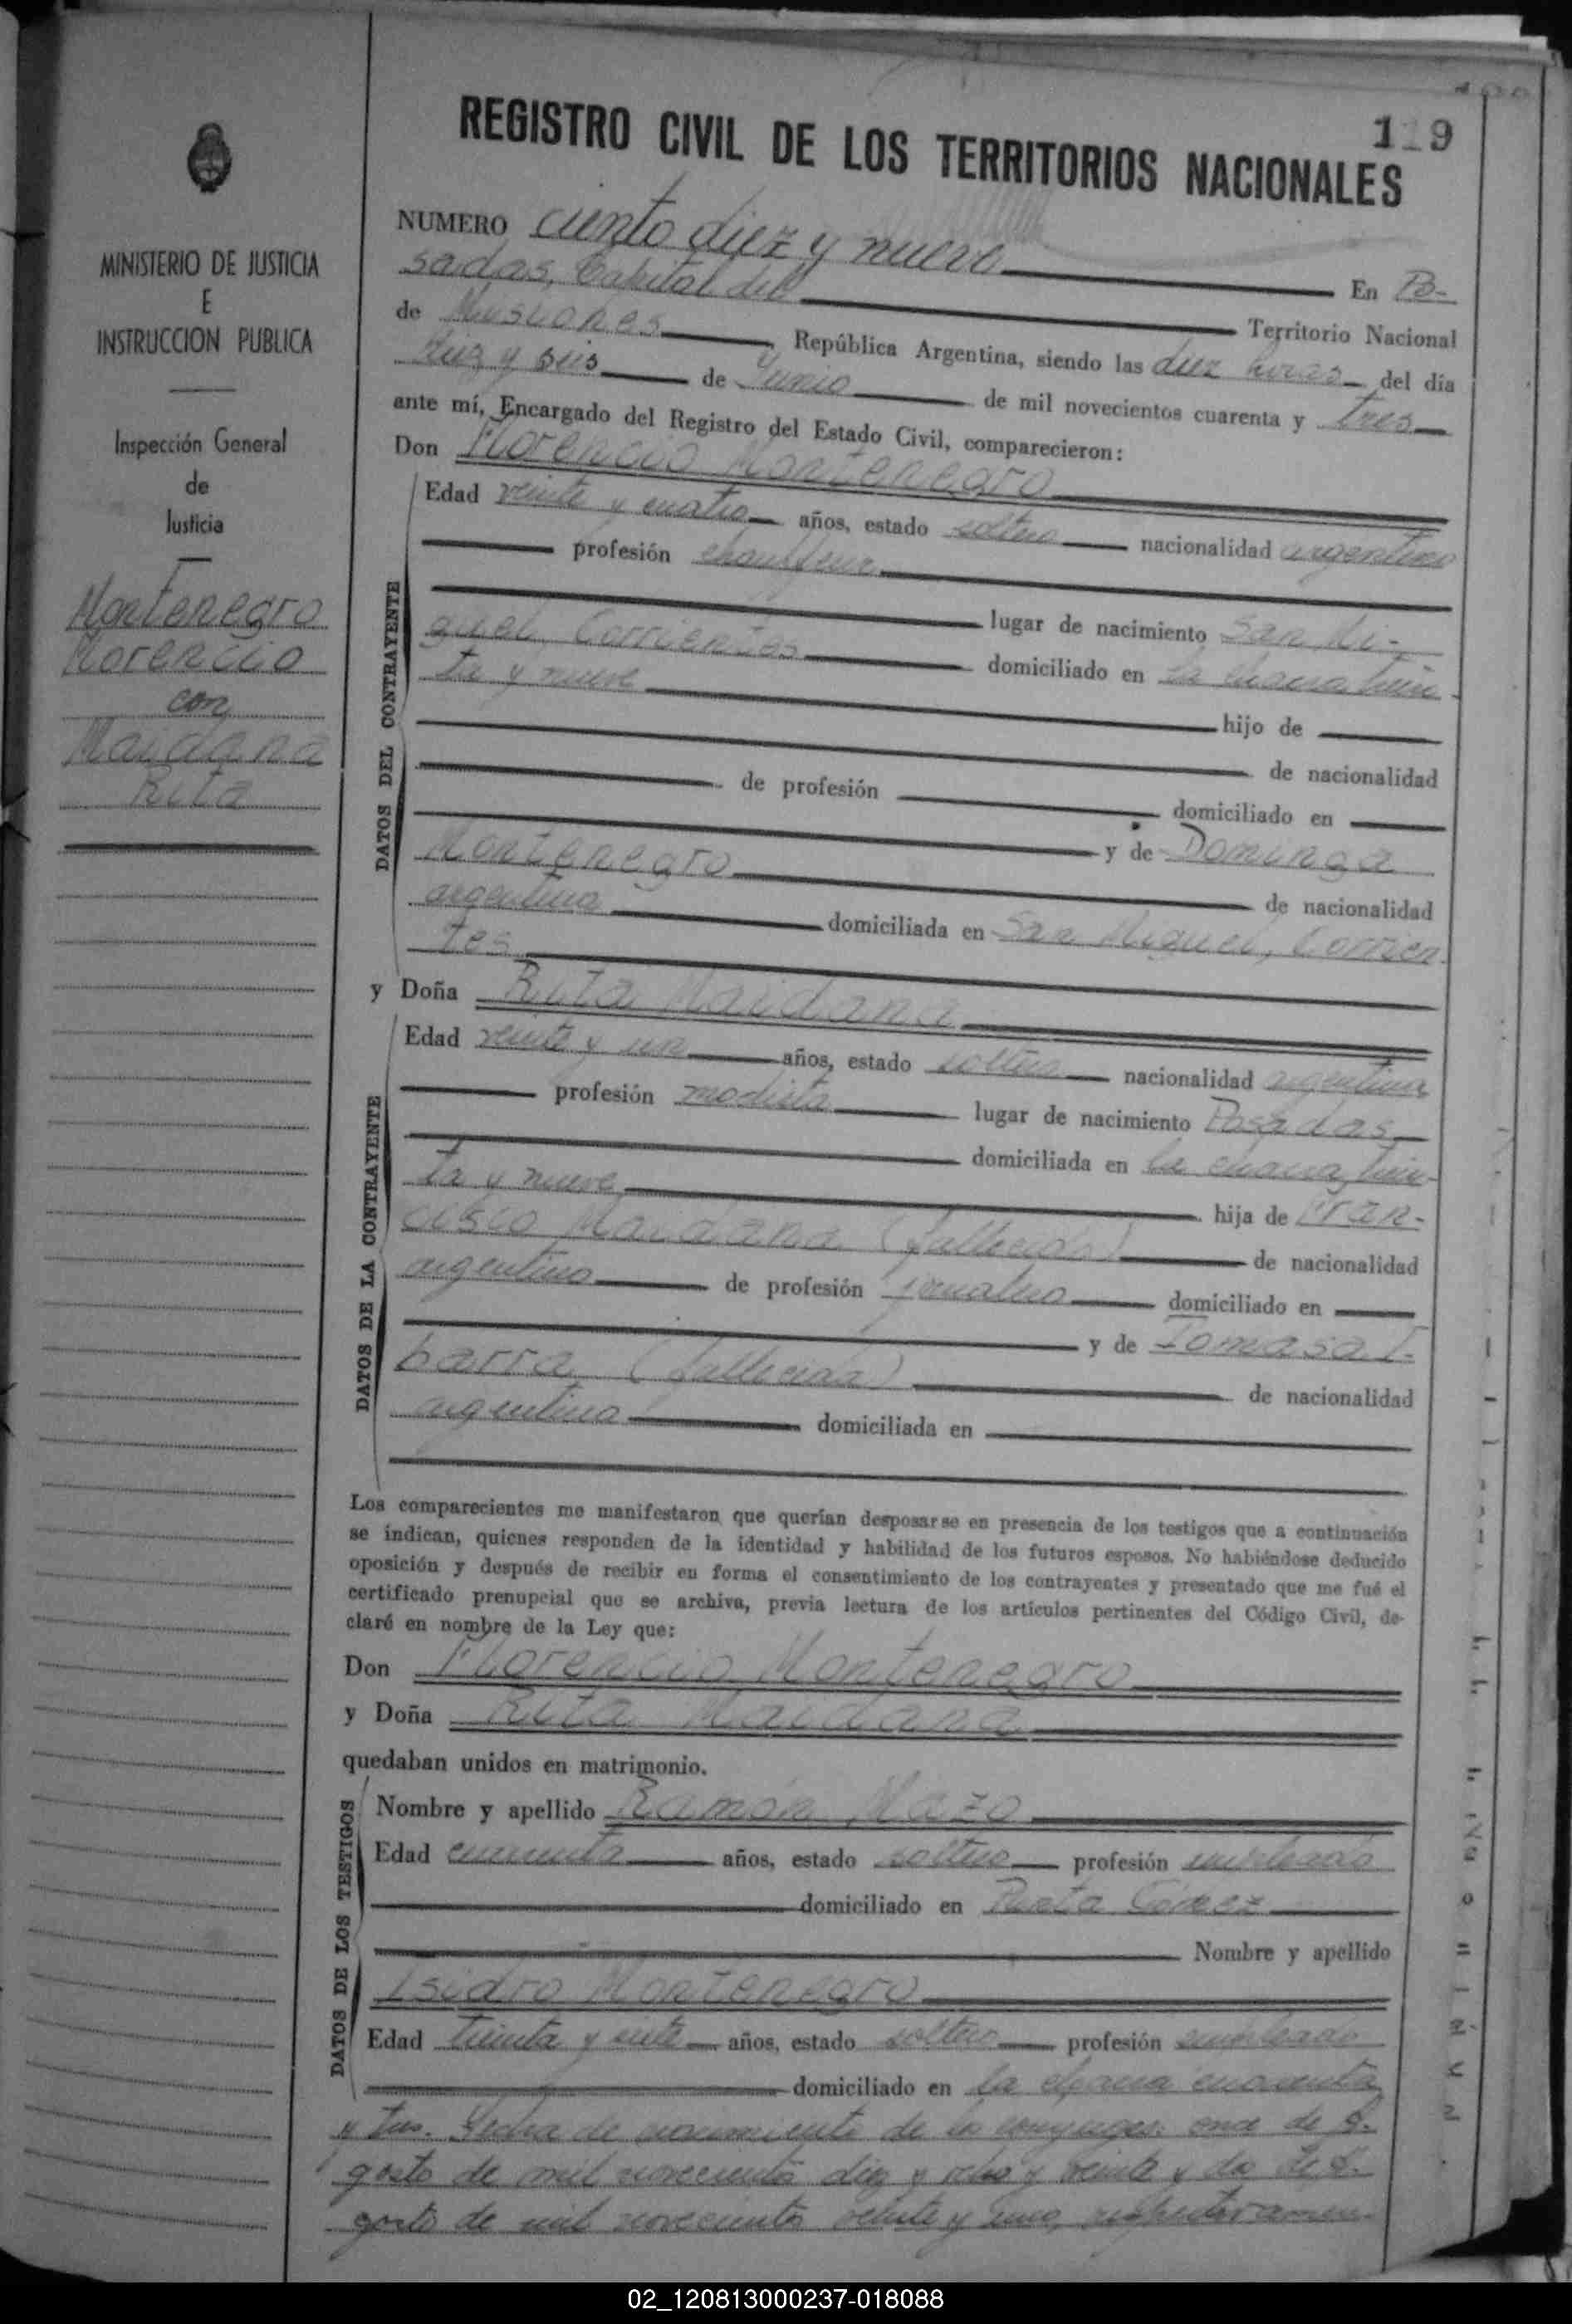 119
REGISTRO CIVIL DE LOS TERRITORIOS NACIONALES
MINISTERIO DE JUSTICIA
E
INSTRUCCION PUBLICA
Inspección General
de
Justicia
Montenegro
Florencio
con
Maidana
Rita
NUMERO ciento diez y nueve En Po-
sadas, Capital del Territorio Nacional
de Misiones, República Argentina, siendo las diez horas del día
diez y seis de Junio de mil novecientos cuarenta y tres
ante mí, Encargado del Registro del Estado Civil, comparecieron:
Don Florencio Montenegro
DATOS DEL CONTRAYENTE
Edad veinte y cuatro años, estado soltero nacionalidad argentino
profesión chauffeur
lugar de nacimiento San Mi-
guel, Corrientes domiciliado en la chacra trein-
ta y nueve hijo de
de nacionalidad
de profesión domiciliado en
y de Dominga
Montenegro de nacionalidad
argentina domiciliada en San Miguel, Corrien-
tes
y Doña Rita Maidana
DATOS DE LA CONTRAYENTE
Edad veinte y un años, estado soltera nacionalidad argentina
profesión modista lugar de nacimiento Posadas
domiciliada en la chacra trein-
ta y nueve hija de Fran-
cisco Maidana (fallecido) de nacionalidad
argentino de profesión jornalero domiciliado en
y de Tomasa I-
barra (fallecida) de nacionalidad
argentina domiciliada en
Los comparecientes me manifestaron que querían desposarse en presencia de los testigos que a continuación
se indican, quienes responden de la identidad y habilidad de los futuros esposos. No habiéndose deducido
oposición y después de recibir en forma el consentimiento de los contrayentes y presentado que me fué el
certificado prenupcial que se archiva, previa lectura de los artículos pertinentes del Código Civil, de-
claré en nombre de la Ley que:
Don Florencio Montenegro
y Doña Rita Maidana
quedaban unidos en matrimonio.
DATOS DE LOS TESTIGOS
Nombre y apellido Ramón Mazo
Edad cuarenta años, estado soltero profesión empleado
domiciliado en Punta Gómez
Nombre y apellido
Isidro Montenegro
Edad treinta y siete años, estado soltero profesión empleado
domiciliado en la chacra cuarenta
y tres. Fecha de nacimiento de los conyuges: once de A-
gosto de mil novecientos diez y ocho y veinte y dos de A-
gosto de mil novecientos veinte y uno, respectivamen-
02_120813000237-018088